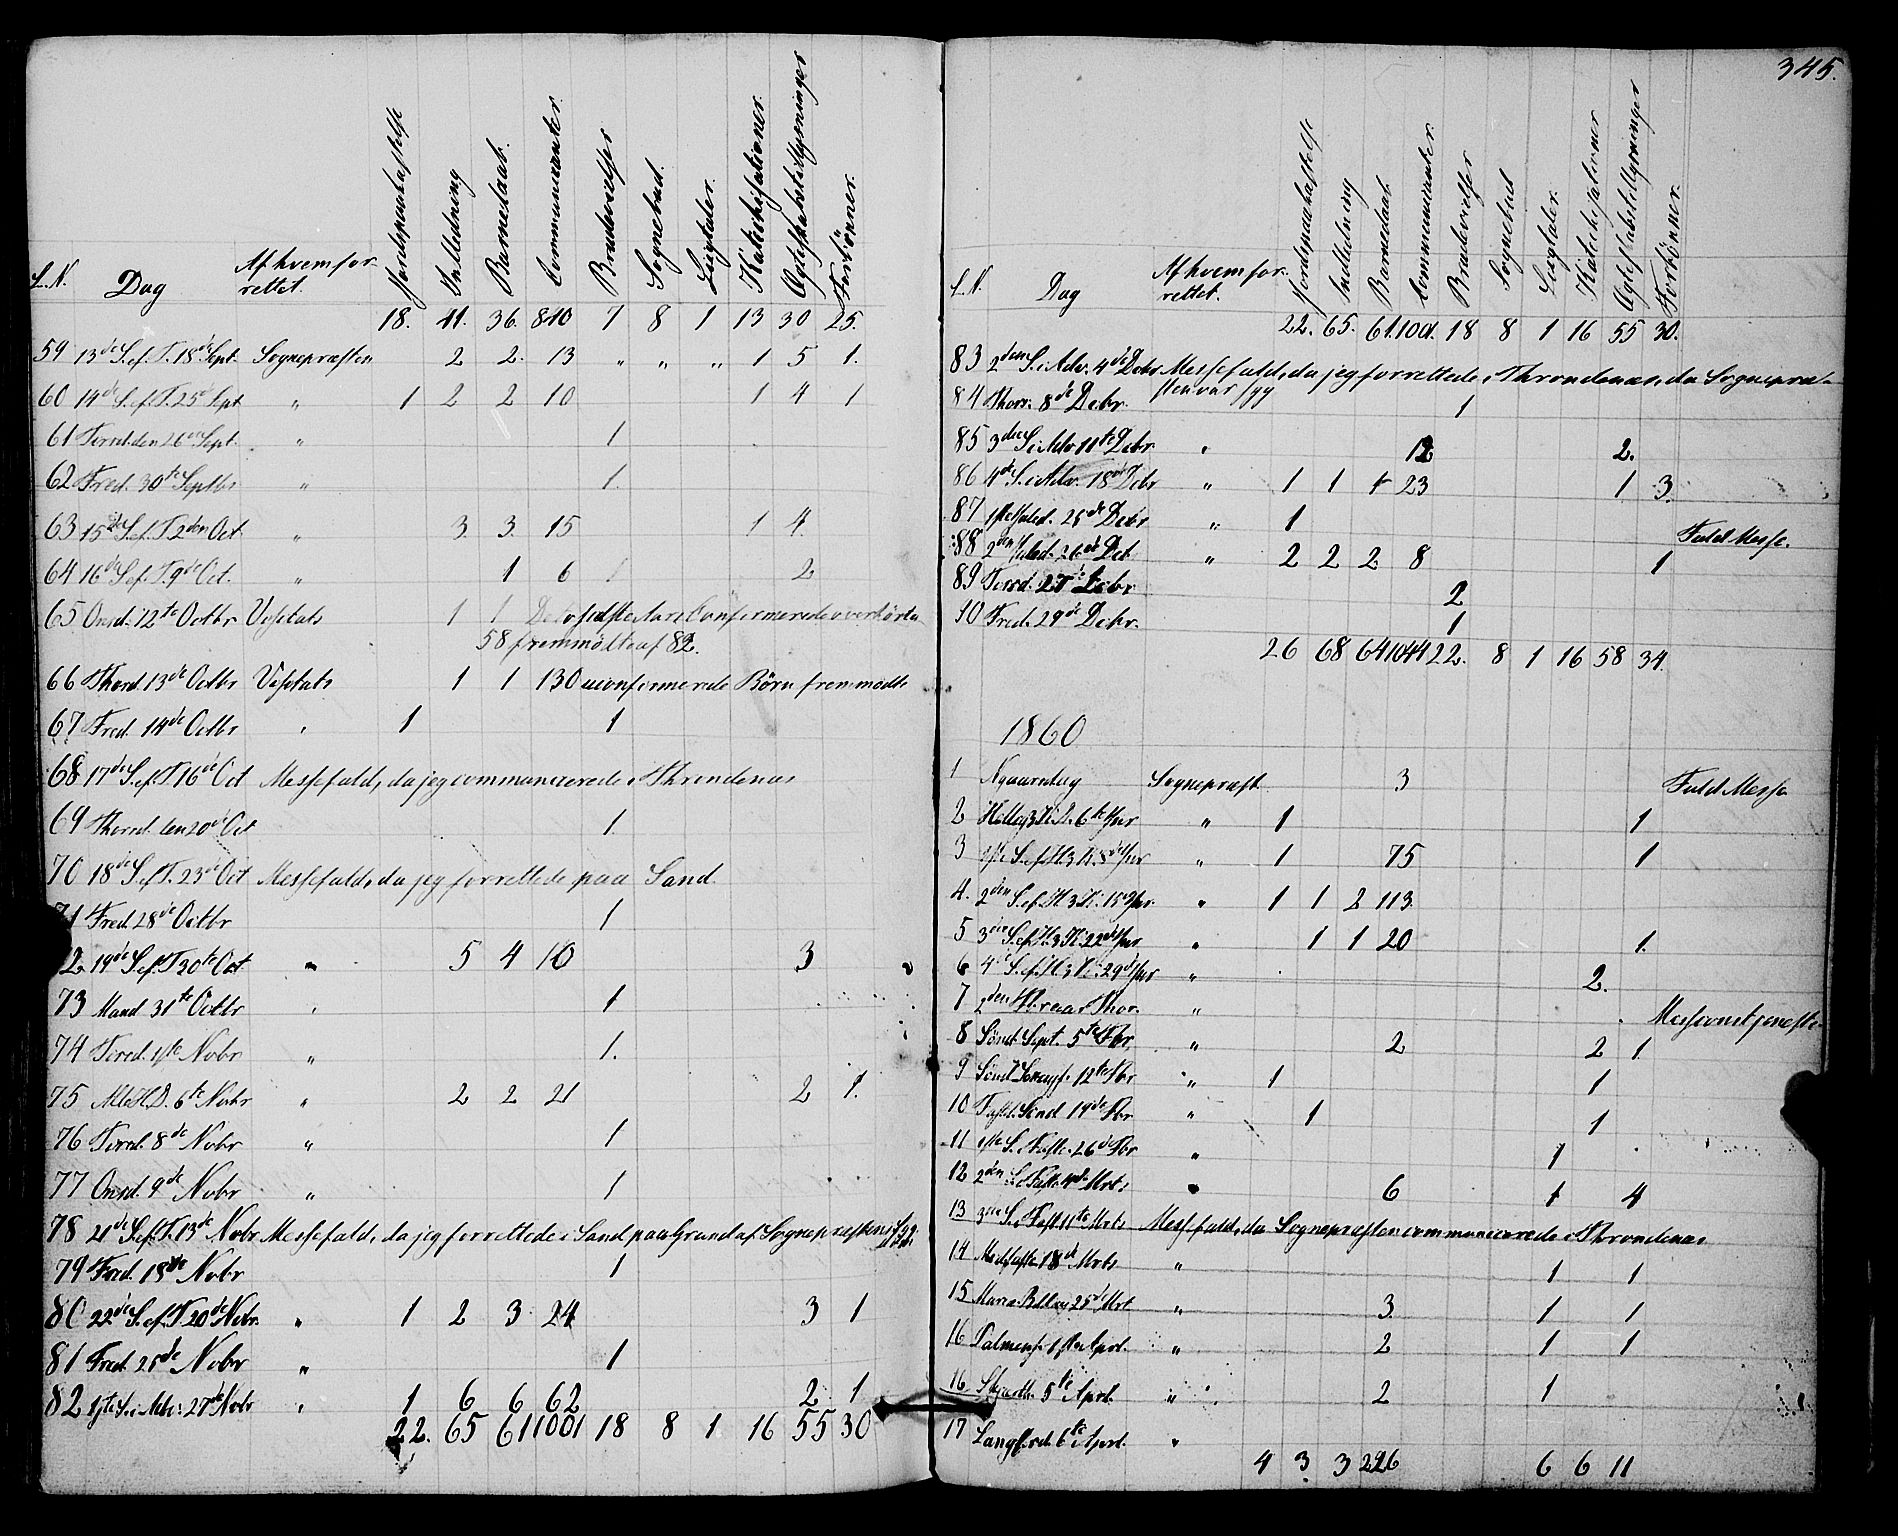 345.
L.N. Dag Af hvem for- Jordspaakastelse Indledning Barnedaab. Communicanter. Brudevielser Sognebud. Liigtaler. Katechisationer. Ægteskabstillysninger Forbønner.
rettet.
18. 41. 36. 840 7 8 1 13 30 25.
59 13de S. ef. T. 18de Sept. Sognepræsten 2 2. 13 " " " 1 5 1.
60 14de S. ef. T. 25de Sept " 1 2 2 10 1 4 1
61 Torsd. den 26de Sept. " 1
62 Fred. 30te Septbr " 1.
63 15de S. ef. T 2den Oct " 3. 3. 15 1 4.
64 16de S. ef. T. 9de Oct. " 1 6 1 2
65 Onsd. 12te Octbr Visitats 1 1 De to sidste Aars Confirmerede overhørte
58 fremmødte af 82.
66 Thorsd. 13de Octbr Visitats 1 1 130 uconfirmerede Børn fremmødte
67 Fred. 14de Octbr " 1 1
68 17de S. ef. T 16de Oct Messefald, da jeg communicerede i Throndenæs
69 Thorsd. den 20de Oct 1.
70 18de S. ef T. 23de Oct Messefald, da jeg forrettede paa Sand.
71 Fred. 28de Octbr 1
72 19de S. ef. T 30te Oct " 5 4 10 3
73 Mand 31te Octbr " 1
74 Tirsd. 1ste Novbr " 1.
75 Alle H. D. 6te Novbr " 2 2 21 2 1.
76 Tirsd. 8de Novbr " 1
77 Onsd. 9de Novbr " 1
78 21de S. ef. T. 13de Novbr Messefald, da jeg forrettede i Sand paa Grund af Sognepræstens Syg-
dom
79 Fred. 18de Novbr 1
80 22de S. ef. T. 20de Novbr. " 1 2 3 24 3 1
81 Fred. 25de Novbr " 1
82 1ste S. i Adv: 27de Novbr " 1 6 6 62 2 1
22. 65 61 1001 18 8 1 16 55 30
L.N. Dag Af hvem for- Jordspaakastelse Indledning Barnedaab Communicanter Brudevielser Sognebud Liigtaler. Katechisationer Ægteskabstillysninger Forbønner.
rettet.
22. 65. 61. 1001. 18 8 1 16 55 30.
83 2den S. i Adv. 4de Debr Messefald, da jeg forrettede i Throndenæs, da Sognepræ-
sten var syg
84 Thorsd. 8de Debr. 1
85 3die S. i Adv 11te Debr. " 12 2.
86 4de S. i Adv. 18de Debr " 1 1 1 23 1 3.
87 1ste Juled. 25de Debr " 1 Fuld Messe.
88 2den Juled. 26de Deb " 2 2 2 8 1
89 Tirsd. 27de Debr 2
90 Fred. 29de Debr. 1
26 68 64 1044 22. 8 1 16 58 34.
1860
1 Nyaarsdag Sognepræst. 3 Fuld Messe
2 Hellig 3 K. D. 6te Jnr " 1 1
3 1ste S. ef. H. 3 K. 8de Jnr " 1 75 1
4. 2den S. ef. H. 3 K. 15de Jnr. " 1 1 2 113.
5 3die S. ef. H. 3 K. 22de Jnr " 1 1 20 1.
6 4de S. ef. H. 3 K. 29de Jnr " 2.
7 2den Thor. " Messeontjeneste
8 Sønd. Sept. 5te Fbr. " 2 2 1
9 Sønd. 12te Fbr " 1 1
10 Fastel. Sønd 19de Fbr " 1 1
11 1ste S. i Faste. 26de Fbr " 1
12 2den S. i Faste 4de Mrts " 6 1 4
13 3die S. i Fast. 11te Mrts Messefald, da Sognepræsten communicerede i Throndenæs
14 Midfaste 18de Mrts " 1 1
15 Mariæ B. Dag 25de Mrt " 3. 1 1
16 Palmes. 1ste Aprl. " 2 1 1
16 Skjærth. 5te Aprl. " 2 1
17 Langfred. 6te Aprl. "
4 3 3 226 6 6 11